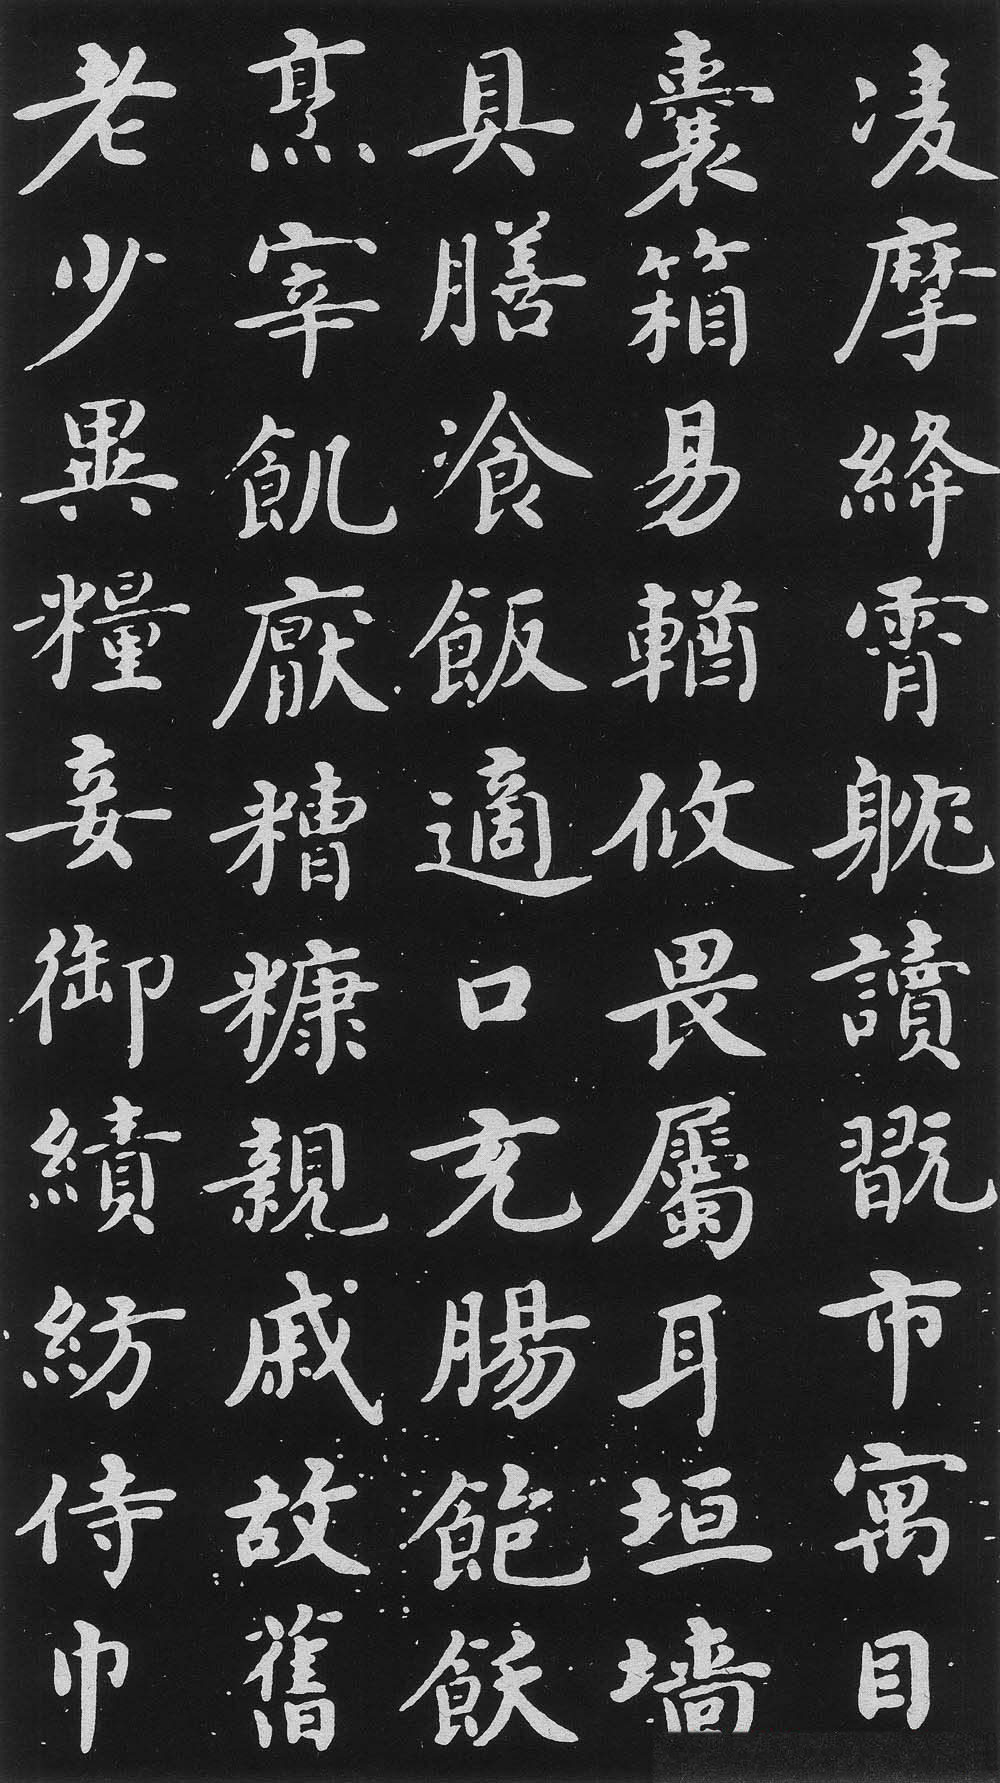 凌摩絳霄躭讀翫市寓目
囊箱易輶攸畏屬耳垣墻
具膳飡飯適口充腸飽飫
烹宰飢猒糟糠親戚故舊
老少異糧妾御績紡侍巾